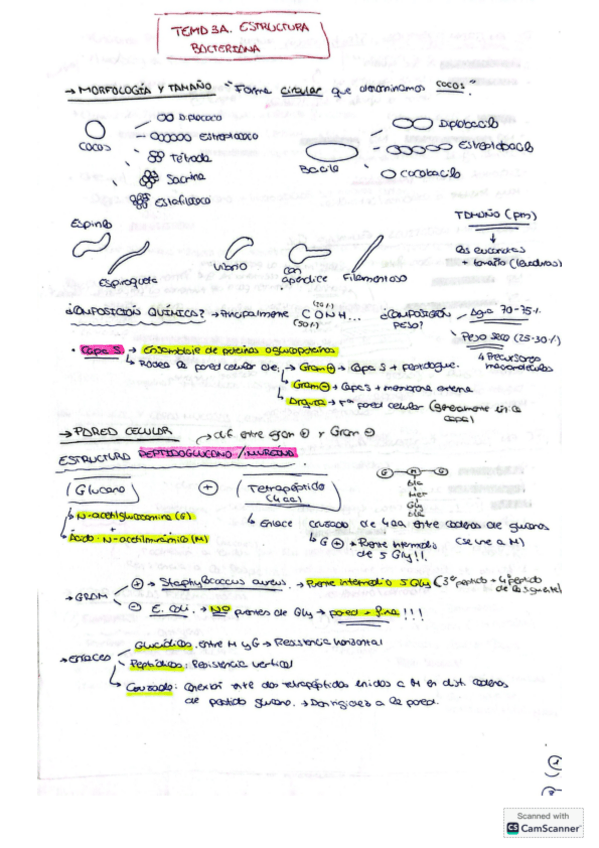 TEMA 3A. ESTRUCTURA
BACTERIANA
→ MORFOLOGÍA Y TAMAÑO "Forma circular que denominamos cocos."
Cocos
Diplococo
Estreptococo
Tétrada
Sarcina
Estafilococo
Bacilo
Diplobacilo
Estreptobacilo
Cocobacilo
TAMAÑO (µm)
los eucariotas
+ tamaño (levaduras)
Espirilo
Espiroqueta
Vibrio
con
apéndice
Filamentoso
¿COMPOSICIÓN QUÍMICA? → Principalmente C O N H...
(20%)
(50%)
¿COMPOSICIÓN
PESO?
Agua 70-75%
Peso seco (25-30%)
4 Precursores
macromoléculas
• Capa S → Ensamblaje de proteínas o glucoproteínas
↳ Rodea la pared celular de: → Gram ⊕ → Capa S + peptidogluc.
↳ Gram ⊖ → Capa S + membrana externa
↳ Arquea → pared celular (generalmente única
capa)
→ PARED CELULAR → dif. entre gram ⊕ y Gram ⊖
ESTRUCTURA PEPTIDOGLUCANO / MUREÍNA
Glucano
⊕
Tetrapéptido
(4 aa)
G M G
↳ N-acetilglucosamina (G)
+
↳ Ácido-N-acetilmurámico (M)
↳ Enlace cruzado de 4 aa entre cadenas de glucano
↳ G ⊕ → Puente intermedio (se une a M)
de 5 Gly!!
→ GRAM
⊕ → Staphylococcus aureus. → Puente intermedio 5 Gly (3º péptido + 4º péptido
de la siguiente)
⊖ E. Coli. → NO puentes de Gly → pared + fina!!!
→ ENLACES
Glucídicos: entre M y G → Resistencia horizontal
Peptídicos: Resistencia vertical
↳ Cruzado: conexión entre dos tetrapéptidos unidos a M en dist. cadenas
de péptido glucano. → Dan rigidez a la pared.
Scanned with
CS CamScanner